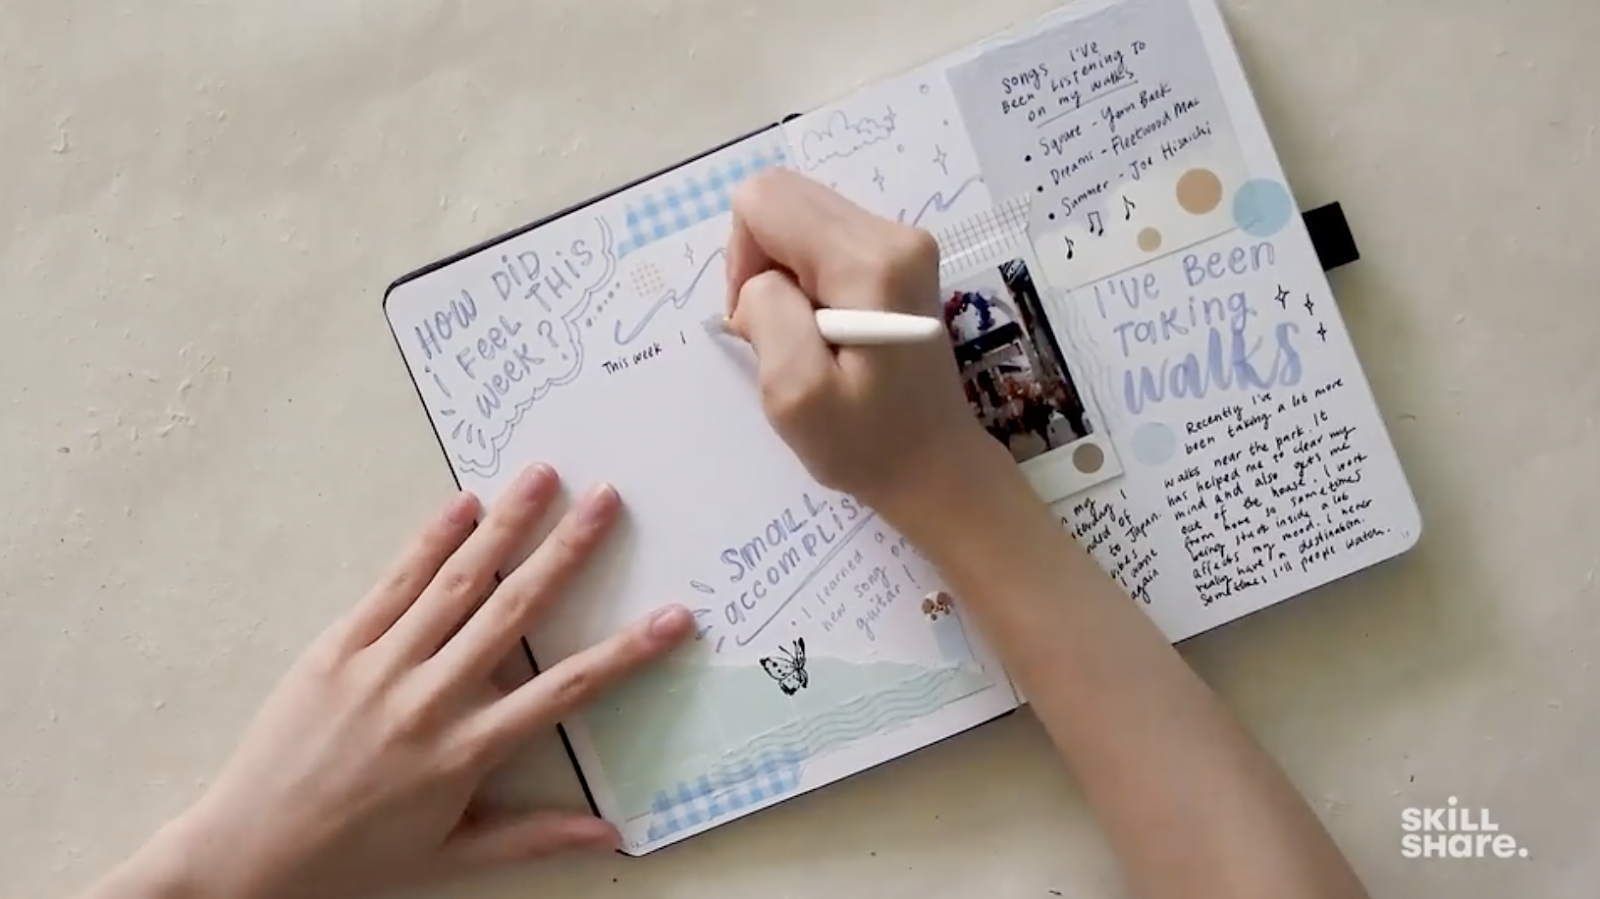 HOW DID
i FEEL THIS
WEEK?
This week I
SMALL
accomplis
• I learned a
new song on
guitar!
Songs I've
Been Listening To
on my walks
• Square - Yerin Baek
• Dreams - Fleetwood Mac
• Summer - Joe Hisaishi
I've Been
Taking
walks
Recently I've
been taking a lot more
walks near the park. It
has helped me to clear my
mind and also gets me
out of the house. I work
from home so sometimes
being stuck inside a lot
affects my mood. I never
really have a destination.
Sometimes I'll people watch.
my
I
of
to Japan.
again
SKILL
SHare.